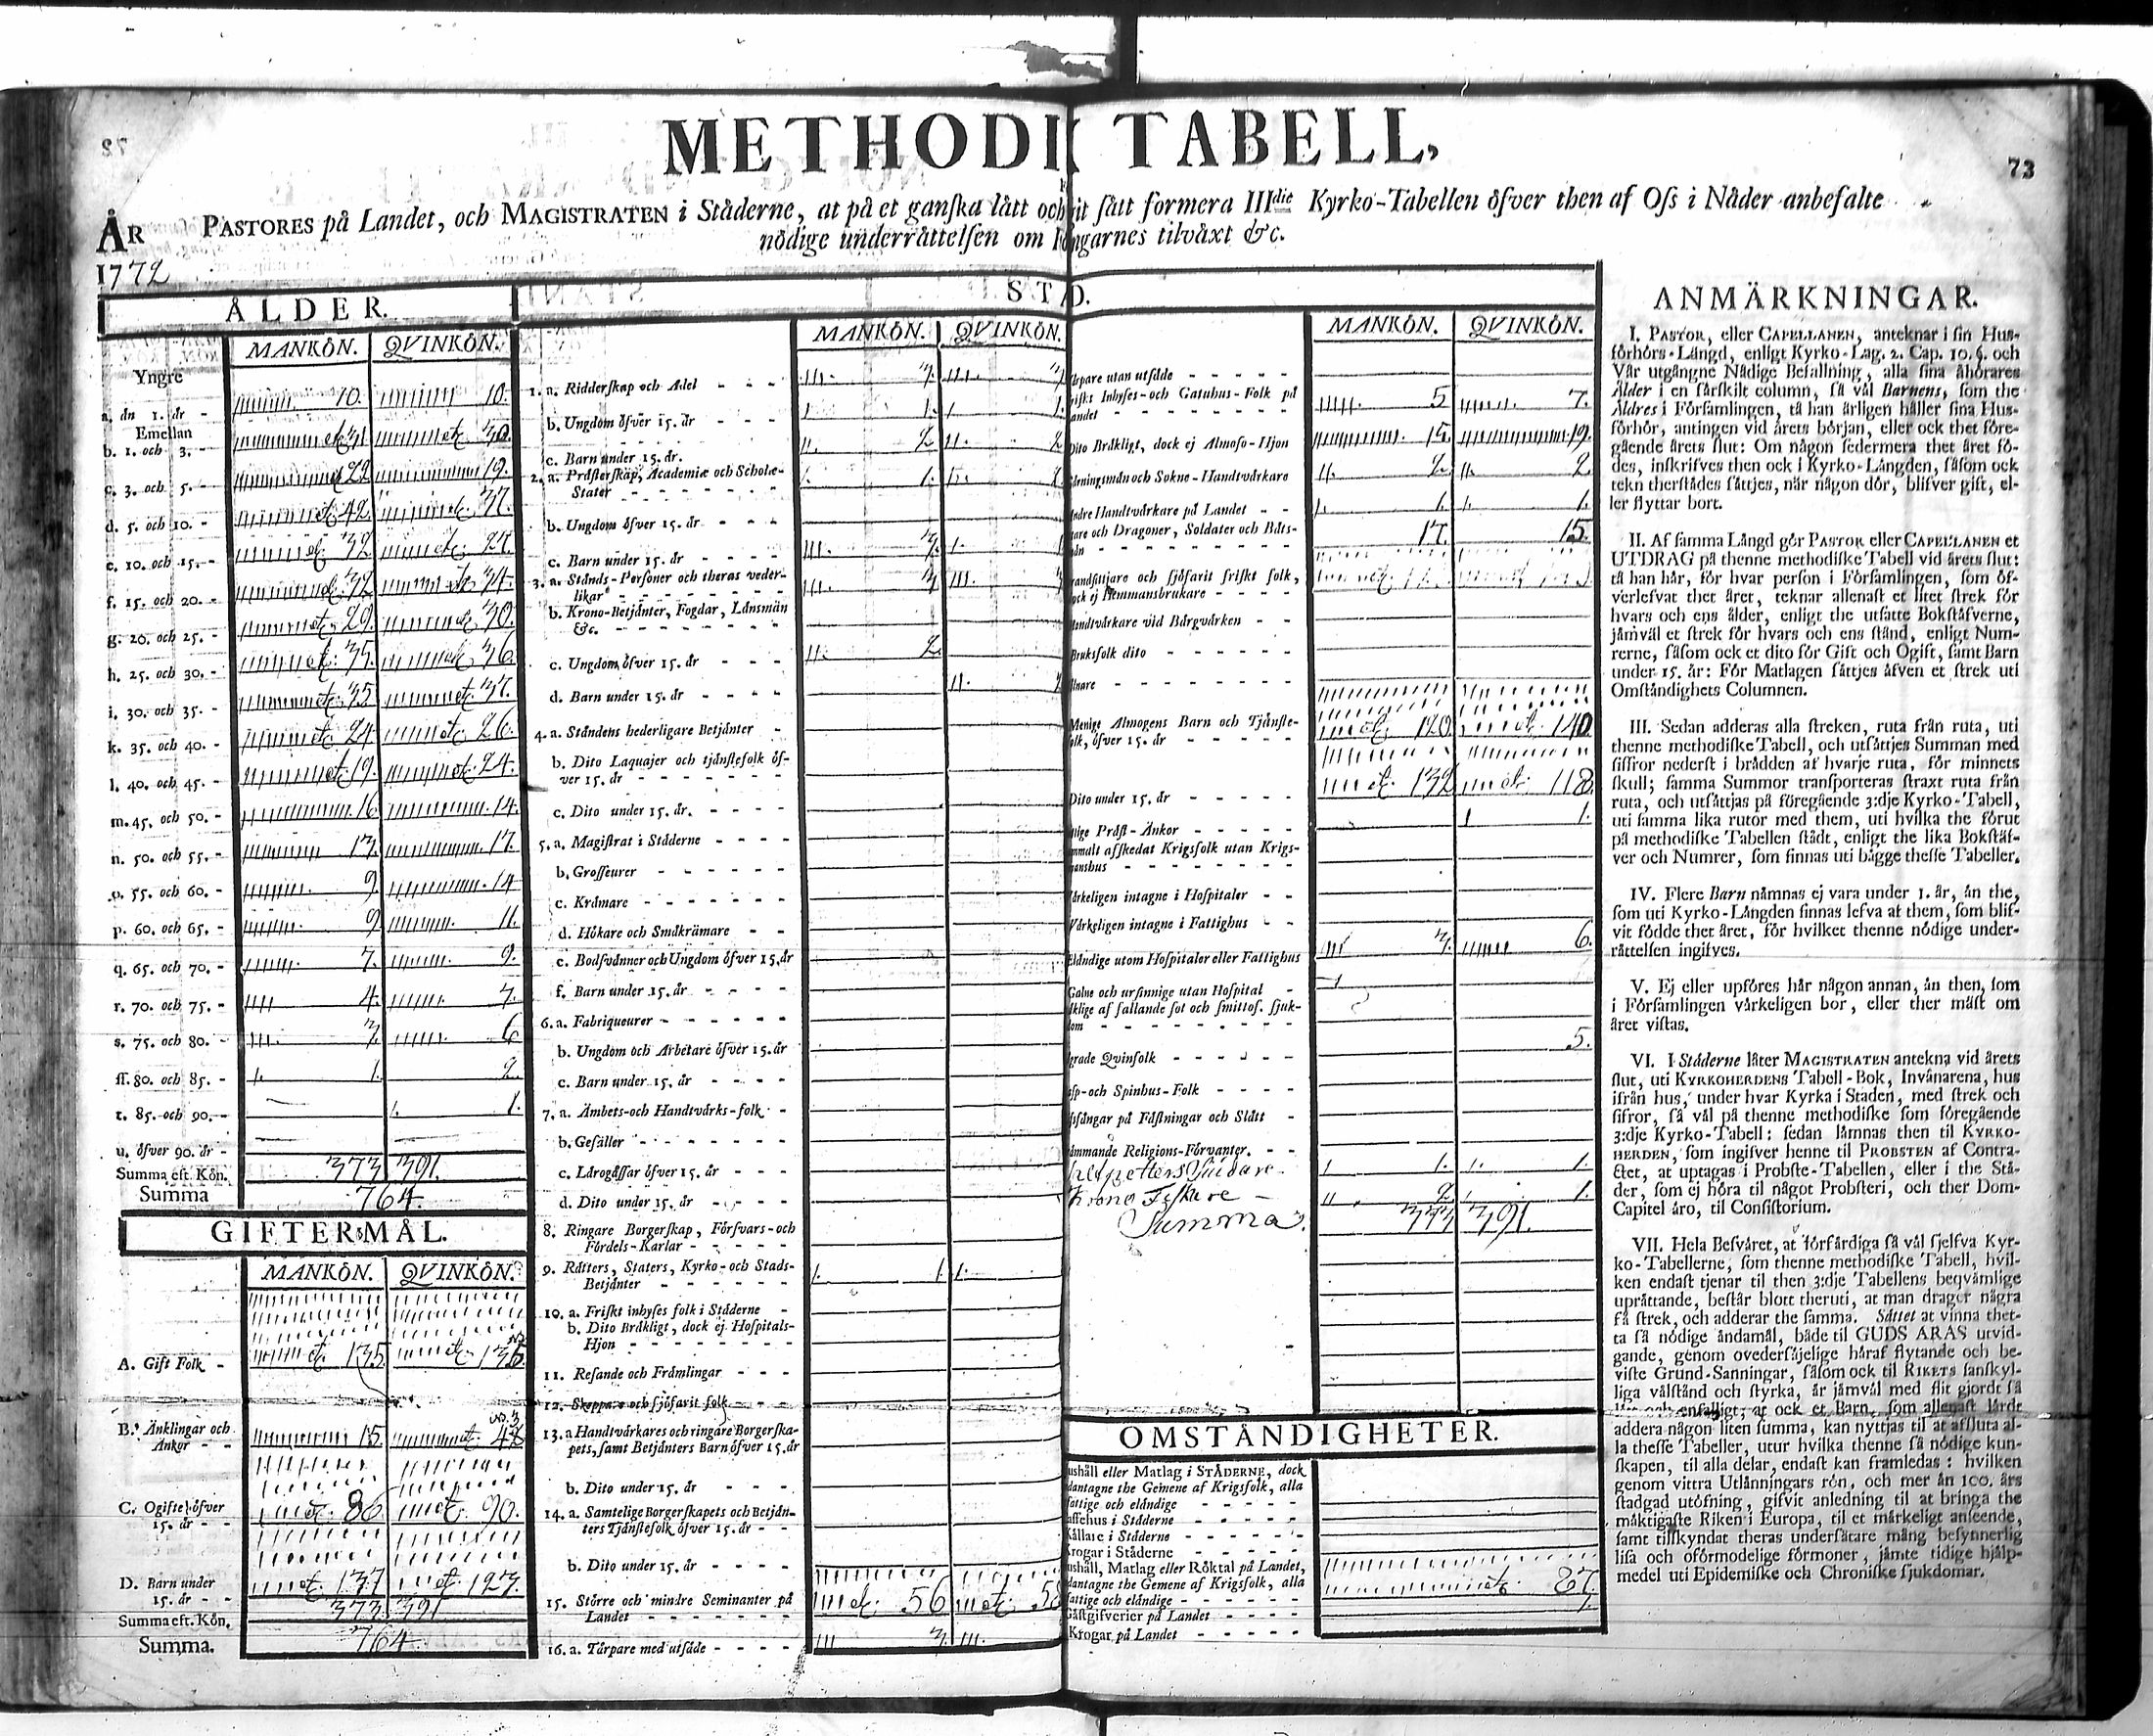 METHODI TABELL,
73
ÅR
1772
PASTORES på Landet, och MAGISTRATEN i Städerne, at på et ganska lätt och it sätt formera IIIdie Kyrko-Tabellen öfver then af Oss i Nåder anbefalte
nödige underrättelsen om I ngarnes tilväxt &c.
ÅLDER.
MANKÖN. QVINKÖN.
Yngre
a. än 1. år - 10. 10.
Emellan
b. 1. och 3. - etc 31 etc 30.
c. 3. och 5. - 22 19.
d. 5. och 10. - etc. 42 etc. 37.
e. 10. och 15. - etc. 32 etc. 27.
f. 15. och 20. - etc. 32 etc. 34.
g. 20. och 25. - etc. 29. etc. 30.
h. 25. och 30. - etc. 35. etc. 36.
i. 30. och 35. - etc. 35 etc. 37.
k. 35. och 40. - etc. 24. etc. 26.
l. 40. och 45. - etc. 19. etc. 24.
m. 45. och 50. - 16. 14.
n. 50. och 55. - 13. 17.
o. 55. och 60. - 9. 14
p. 60. och 65. - 9. 11.
q. 65. och 70. - 7. 9.
r. 70. och 75. - 4. 7.
s. 75. och 80. - 3. 6
ss. 80. och 85. - 1. 2.
t. 85. och 90. - 1.
u. öfver 90. år -
Summa eft. Kön. 373 391.
Summa 764.
GIFTERMÅL.
MANKÖN. QVINKÖN.
A. Gift Folk - etc. 135 etc.
B. Änklingar och
Änkor - - 15. etc.
C. Ogifte öfver
15. år - - etc. 86 etc. 90.
D. Barn under
15. år - - etc. 137 etc. 123.
Summa eft. Kön. 373 391
Summa. 764.
STÅ D.
MANKÖN. QVINKÖN.
1. a. Ridderskap och Adel - - - 3. 3.
b. Ungdom öfver 15. år - - - 1. 1.
c. Barn under 15. år. 2 2
2. a. Prästerskap, Academiæ och Scholæ-
Stater - - - - - - - 1. 1
b. Ungdom öfver 15. år - - -
c. Barn under 15. år - - - - 3. 1
3. a. Stånds-Personer och theras veder-
likar - - - - - - - 3 3
b. Krono-Betjänter, Fogdar, Länsmän
&c. - - - - - - -
c. Ungdom öfver 15. år - - - 2.
d. Barn under 15. år - - - - 2
4. a. Ståndens hederligare Betjänter -
b. Dito Laquajer och tjänstefolk öf-
ver 15. år - - - - - - -
c. Dito under 15. år. - - - -
5. a. Magistrat i Städerne - - - -
b. Grosseurer - - - - - -
c. Krämare - - - - - - -
d. Hökare och Småkrämare - -
e. Bodsvänner och Ungdom öfver 15. år
f. Barn under 15. år - - - -
6. a. Fabriqueurer - - - - - -
b. Ungdom och Arbetare öfver 15. år
c. Barn under 15. år - - - -
7. a. Ämbets- och Handtvärks-folk -
b. Gesäller - - - - - - -
c. Lärogåssar öfver 15. år - - -
d. Dito under 15. år - - - -
8. Ringare Borgerskap, Försvars- och
Fördels-Karlar - - - - -
9. Rätters, Staters, Kyrko- och Stads-
Betjänter - - - - - - 1. 1 1.
10. a. Friskt inhyses folk i Städerne -
b. Dito Bräkligt, dock ej Hospitals-
Hjon - - - - - - -
11. Resande och Främlingar - - -
12. Skeppare och sjöfarit folk - -
13. a Handtvärkares och ringare Borgerska-
pets, samt Betjänters Barn öfver 15. år
b. Dito under 15. år - - - -
14. a. Samtelige Borgerskapets och Betjän-
ters Tjänstefolk öfver 15. år - -
b. Dito under 15. år - - - -
15. Större och mindre Seminanter på
Landet - - - - - - - etc. 56 etc. 58
16. a. Tårpare med utsäde - - - - 3.
MANKÖN. QVINKÖN.
rpare utan utsäde - - - - -
riskt Inhyses- och Gatuhus-Folk på
andet - - - - - - - 5 7.
Dito Bräkligt, dock ej Almoso-Hjon 15. 19.
leningsmän och Sokne-Handtvärkare 2. 2.
ndre Handtvärkare på Landet - - 1. 1.
tare och Dragoner, Soldater och Båts-
män - - - - - - - 17. 15.
randsittjare och sjöfarit friskt folk,
ock ej Hemmansbrukare - - - -
andtvärkare vid Bärgvärken - -
Bruksfolk dito - - - - - -
lnare - - - - - - - -
Menige Almogens Barn och Tjänste-
olk, öfver 15. år - - - - - etc. 120 etc. 140.
Dito under 15. år - - - - - etc. 132 etc. 118.
ttige Präst-Änkor - - - - - 1.
mmalt afskedat Krigsfolk utan Krigs-
manshus - - - - - - -
ärkeligen intagne i Hospitaler - -
Värkeligen intagne i Fattighus - -
Eländige utom Hospitaler eller Fattighus 3. 6.
Galne och ursinnige utan Hospital -
klige af fallande sot och smittos. sjuk-
dom - - - - - - - -
grade Qvinfolk - - - - - 5.
sp- och Spinhus-Folk - - - -
ssångar på Fästningar och Slått -
ämmande Religions-Förvanter. - - 1. 1.
Krono Fiskare - 2. 1.
Summa. 373 391.
OMSTÄNDIGHETER.
ushåll eller Matlag i STÄDERNE, dock
dantagne the Gemene af Krigsfolk, alla
fattige och eländige - - - - -
affehus i Städerne - - - - -
Källare i Städerne - - - - -
rogar i Städerne - - - - - -
ushåll, Matlag eller Röktal på Landet,
dantagne the Gemene af Krigsfolk, alla
fattige och eländige - - - - - etc. 87.
Gästgifverier på Landet - - - -
Krogar på Landet - - - - -
ANMÄRKNINGAR.
I. PASTOR, eller CAPELLANEN, anteknar i sin Hus-
förhörs-Längd, enligt Kyrko-Lag. 2. Cap. 10. §. och
Vår utgångne Nådige Befallning, alla sina åhörares
Ålder i en särskilt column, så väl Barnens, som the
Äldres i Församlingen, tå han årligen håller sina Hus-
förhör, antingen vid årets början, eller ock thet före-
gående årets slut: Om någon sedermera thet året fö-
des, inskrifves then ock i Kyrko-Längden, såsom ock
tekn therstädes sättjes, när någon dör, blifver gift, el-
ler flyttar bort.
II. Af samma Längd gör PASTOR eller CAPELLANEN et
UTDRAG på thenne methodiske Tabell vid årets slut:
tå han här, för hvar person i Församlingen, som öf-
verlefvat thet året, teknar allenast et litet strek för
hvars och ens ålder, enligt the utsatte Bokstäfverne,
jämväl et strek för hvars och ens stånd, enligt Num-
rerne, såsom ock et dito för Gift och Ogift, samt Barn
under 15. år: För Matlagen sättjes äfven et strek uti
Omständighets Columnen.
III. Sedan adderas alla streken, ruta från ruta, uti
thenne methodiske Tabell, och utsättjes Summan med
siffror nederst i brädden af hvarje ruta, för minnets
skull; samma Summor transporteras straxt ruta från
ruta, och utsättjas på föregående 3:dje Kyrko-Tabell,
uti samma lika rutor med them, uti hvilka the förut
på methodiske Tabellen städt, enligt the lika Bokstäf-
ver och Numrer, som finnas uti bägge thesse Tabeller.
IV. Flere Barn nämnas ej vara under 1. år, än the,
som uti Kyrko-Längden finnas lefva af them, som blif-
vit födde thet året, för hvilket thenne nödige under-
rättelsen ingifves.
V. Ej eller upföres här någon annan, än then, som
i Församlingen värkeligen bor, eller ther mäst om
året vistas.
VI. I Städerne låter MAGISTRATEN antekna vid årets
slut, uti KYRKOHERDENS Tabell-Bok, Invånarena, hus
ifrån hus, under hvar Kyrka i Staden, med strek och
sifror, så väl på thenne methodiske som föregående
3:dje Kyrko-Tabell: sedan lämnas then til KYRKO-
HERDEN, som ingifver henne til PROBSTEN af Contra-
ctet, at uptagas i Probste-Tabellen, eller i the Stä-
der, som ej höra til något Probsteri, och ther Dom-
Capitel äro, til Consistorium.
VII. Hela Besväret, at förfärdiga så väl sjelfva Kyr-
ko-Tabellerne, som thenne methodiske Tabell, hvil-
ken endast tjenar til then 3:dje Tabellens beqvämlige
uprättande, består blott theruti, at man drager några
få strek, och adderar the samma. Sättet at vinna thet-
ta så nödige ändamål, både til GUDS ÄRAS utvid-
gande, genom ovedersäjelige häraf flytande och be-
viste Grund-Sanningar, såsom ock til RIKETS sanskyl-
liga välstånd och styrka, är jämväl med flit gjordt så
enfalligt, at ock et Barn, som allenast lärdt
addera någon liten summa, kan nyttjas til at afsluta al-
la thesse Tabeller, utur hvilka thenne så nödige kun-
skapen, til alla delar, endast kan framledas: hvilken
genom vittra Utlänningars rön, och mer än 100. års
stadgad utöfning, gifvit anledning til at bringa the
mäktigaste Riken i Europa, til et märkeligt anseende,
samt tillskyndat theras undersåtare mång besynnerlig
lisa och oförmodelige förmoner, jämte tidige hjälp-
medel uti Epidemiske och Chroniske sjukdomar.